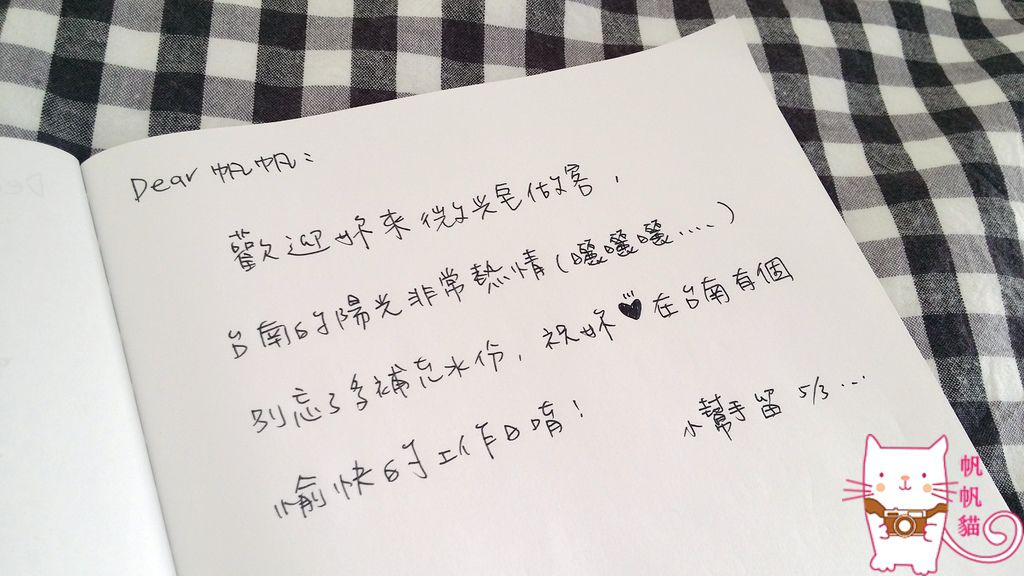 Dear 帆帆：
歡迎妳來微光皂做客，
台南的陽光非常熱情(曬曬曬....)
別忘了多補充水份，祝妳♥在台南有個
愉快的工作日唷！
小幫手 留 5/3...
帆帆貓